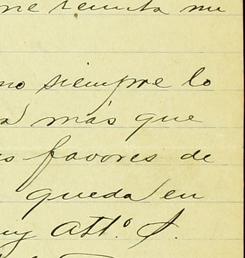 me remita mi
no siempre lo
a más que
s favores de
queda en
uy Att.º S.